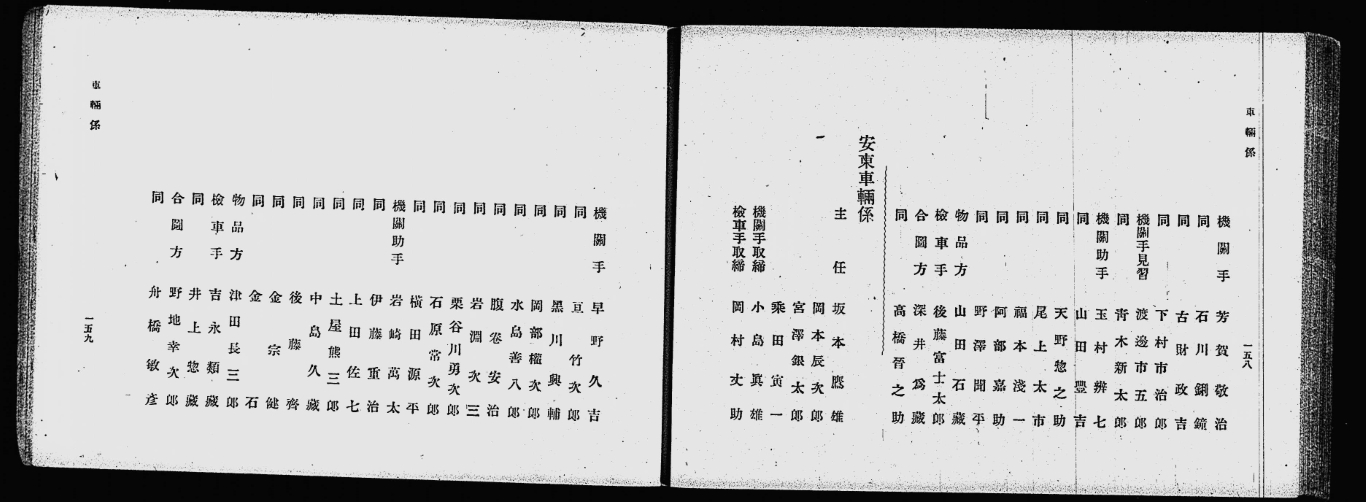 車輛係
一五八
機關手 芳賀敬治
同 石川錭鐘
同 古財政吉
同 下村市治郎
機關手見習 渡邊市五郎
同 青木新太郎
機關助手 玉村辨七
同 山田豐吉
同 天野惣之助
同 尾上太市
同 福本淺一
同 阿部嘉助
同 野澤聞平
物品方 山田石藏
檢車手 後藤富士太郎
合圖方 深井爲藏
同 高橋晉之助
安東車輛係
主任 坂本應雄
岡本辰次郎
宮澤銀太郎
乘田寅一
機關手取締 小島眞雄
檢車手取締 岡村丈助
機關手 早野久吉
同 亘竹次郎
同 黑川興輔
同 岡部權次郎
同 水島善八郎
同 腹卷安治
同 岩淵次三
同 栗谷川勇次郎
同 石原常次郎
同 橫田源平
機關助手 岩崎萬太
同 伊藤重治
同 上田佐七
同 土屋熊三郎
同 中島久藏
同 後藤齊
同 金宗健
同 金石
物品方 津田長三郎
檢車手 吉永類藏
同 井上惣藏
合圖方 野地幸次郎
同 舟橋敏彥
車輛係
一五九